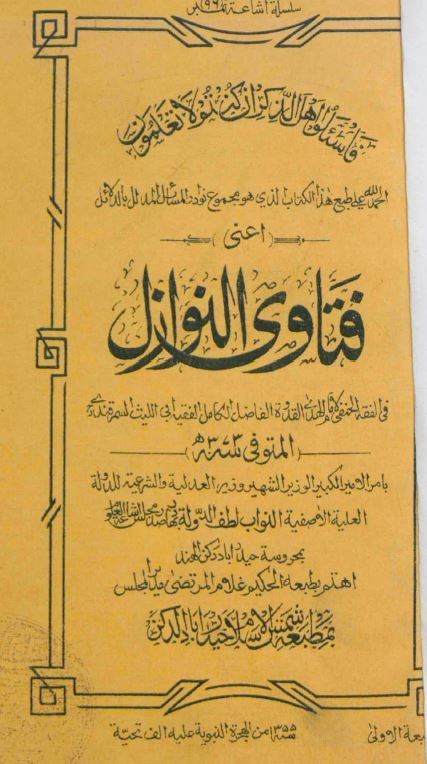 سلسلة اشاعة نمبر ۹۶
فاسئلوا اهل الذكر ان كنتم لا تعلمون
الحمد لله على طبع هذا الكتاب الذي هو مجموع نوادر المسائل المدلل بالدلائل
اعنى
فتاوى النوازل
في الفقه الحنفي لامام الهدى القدوة الفاضل الكامل الفقيه ابى الليث السمرقندى
المتوفى ۳۷۳ سنه ه
بامر الامير الكبير الوزير الشهير وزير العدلية والشرعية للدولة
العلية الاصفية النواب لطف الدولة بهادر صدر مجلس اشاعة العلوم
بمحروسة حيدراباد دكن الهند
اهتم بطبعه الحكيم غلام المرتضى مدير المجلس
بمطبعة شمس الاسلام حيدراباد الدكن
سنه ۱۳۵۵ من الهجرة النبوية عليه الف تحية
بعة الاولى